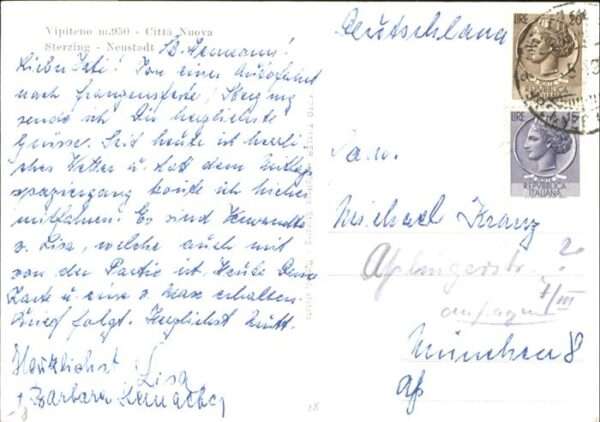 Vipiteno m.950 - Città Nuova
Sterzing - Neustadt
Lieber! Von einer Autofahrt
nach Franzensfeste, Sterzing
sende ich Dir herzlichste
Grüsse. Seit heute ist herrli-
ches Wetter u. statt dem Mittags
spaziergang konnte ich hieher
mitfahren. Es sind Verwandte
v. Lisa, welche auch mit
von der Partie ist. Heute Deine
Karte u. eine v. Max erhalten.
Brief folgt. Herzlichst Mutti.
Herzlichst Lisa
Barbara
Deutschland
LIRE 20
LIRE 15
REPVBBLICA
ITALIANA
Michael Kranz
?
7/III
München 8